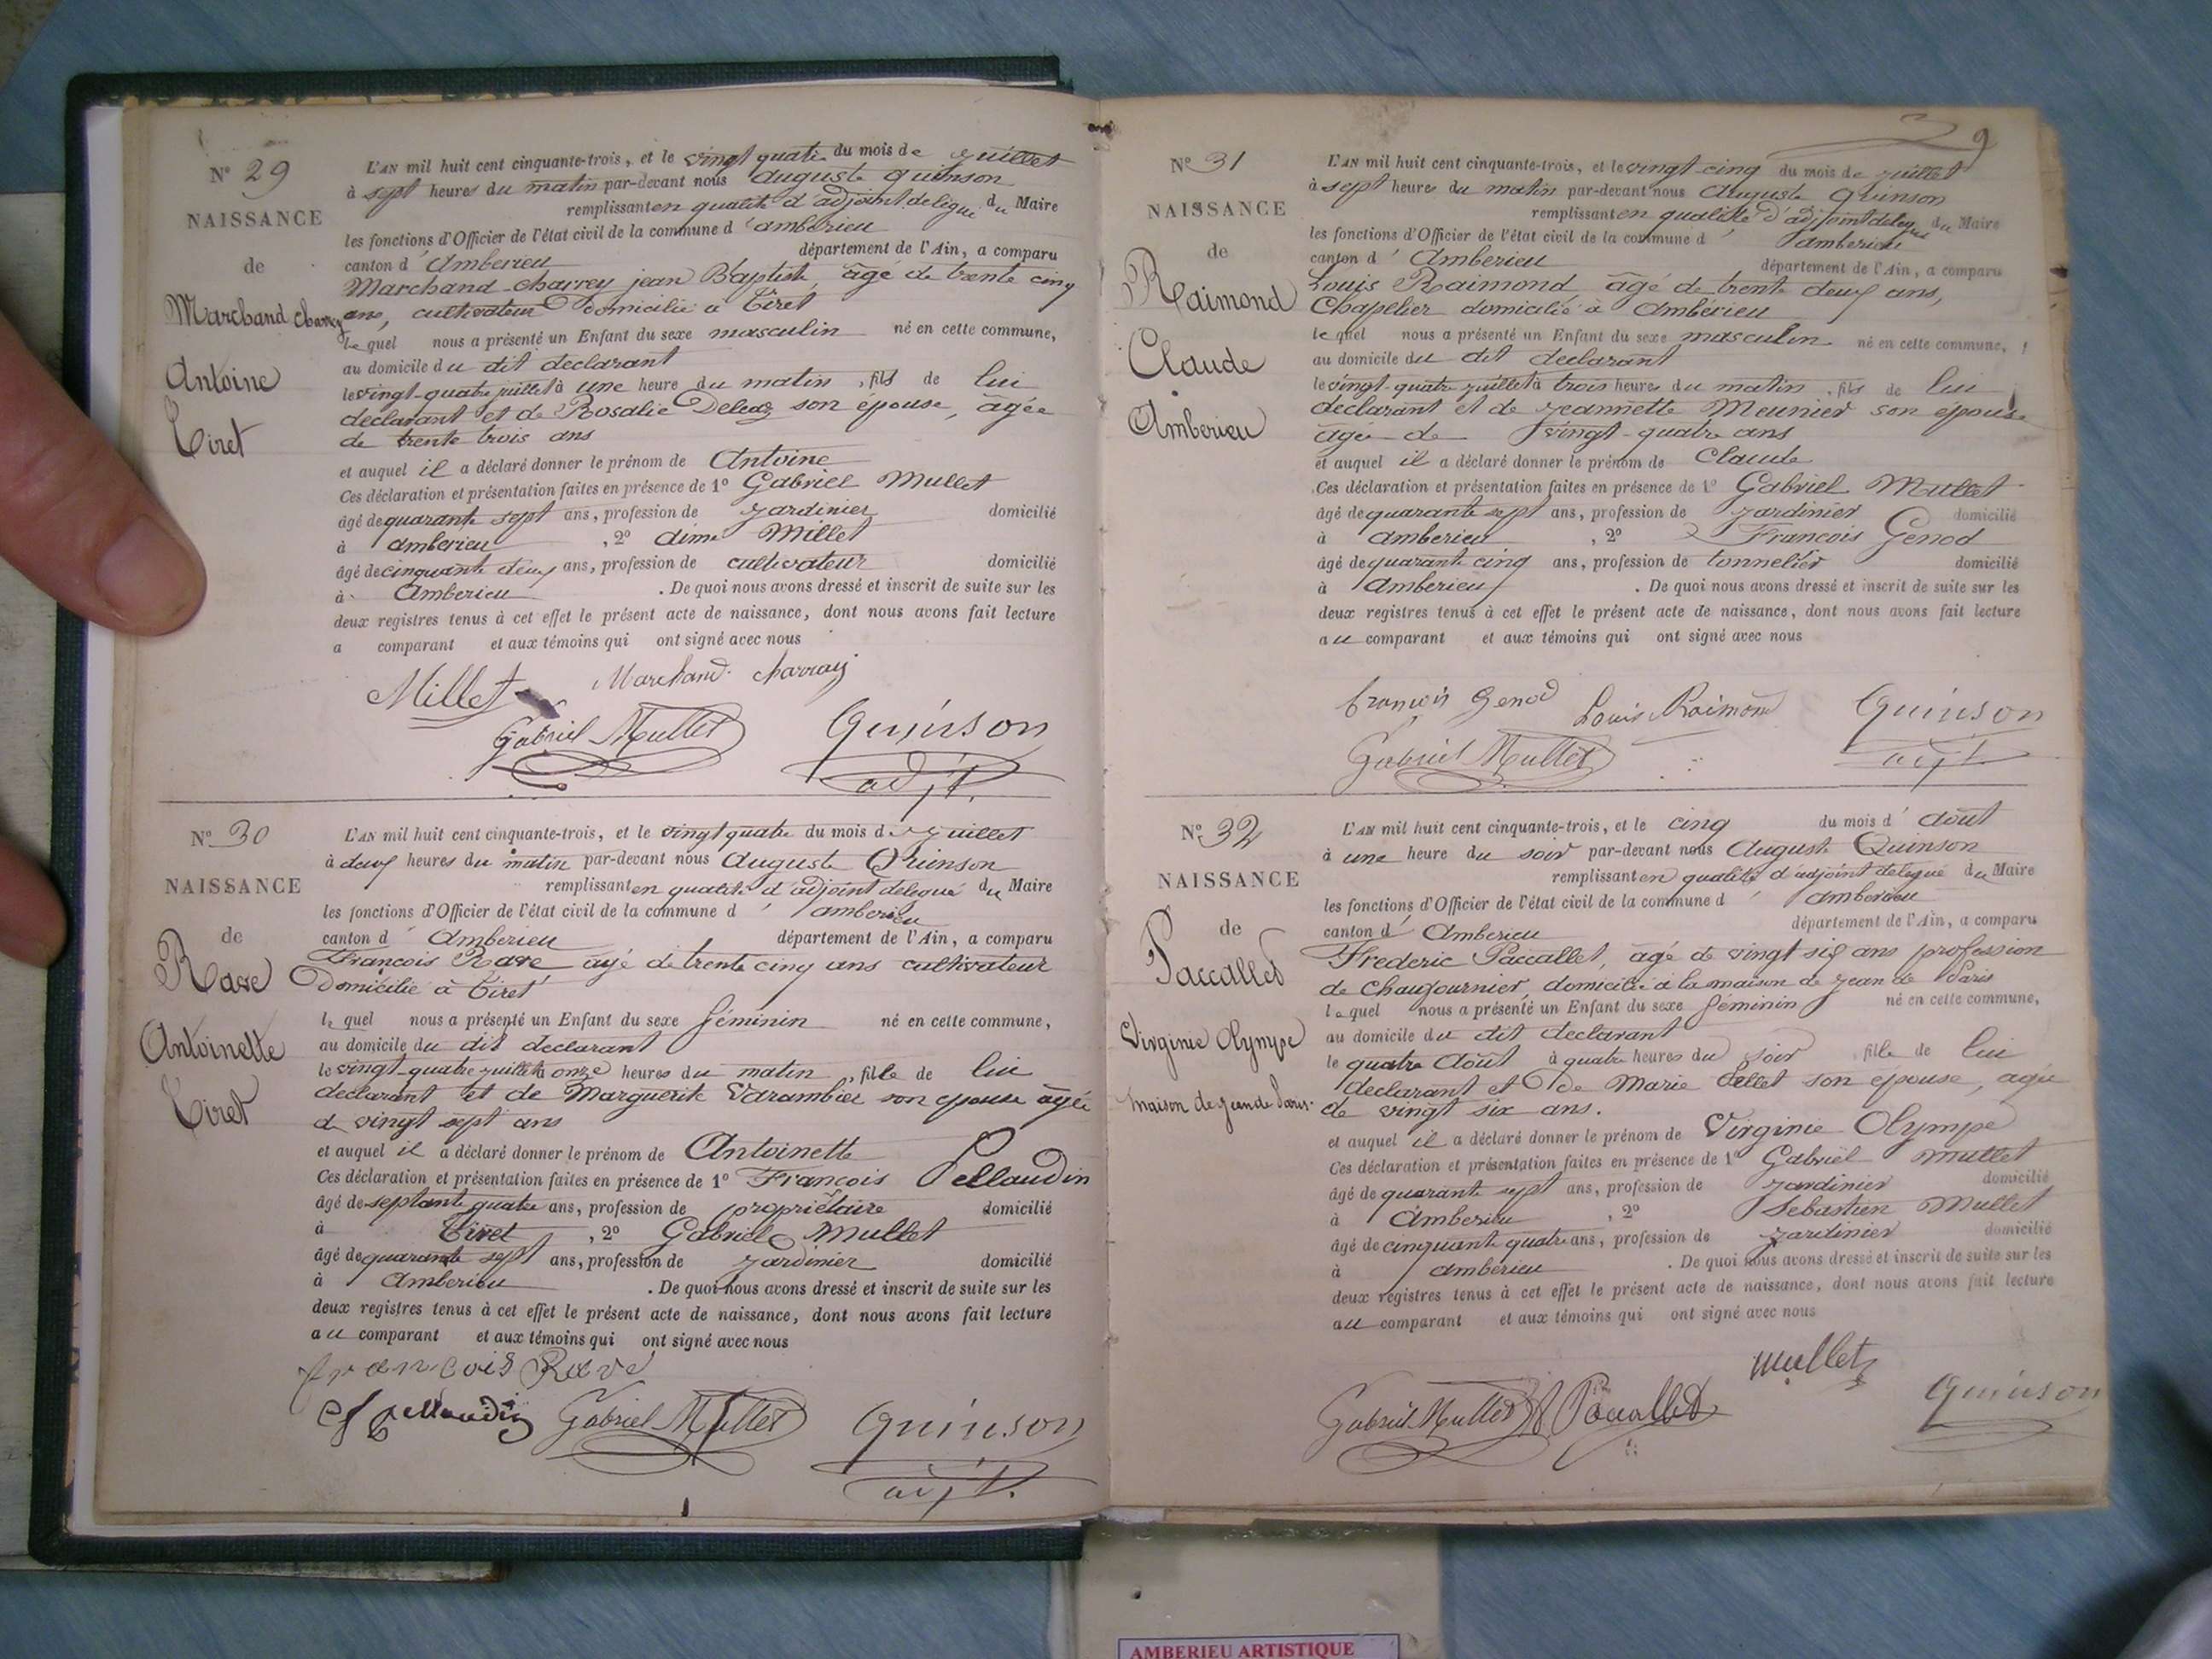 N° 29
NAISSANCE
de
Marchand charvey
Antoine
Tiret
L'AN mil huit cent cinquante-trois, et le vingt quatre du mois de juillet
à sept heures du matin par-devant nous auguste quinson
remplissant en qualité d'adjoint delégué du Maire
les fonctions d'Officier de l'état civil de la commune d'amberieu
canton d'Amberieu département de l'Ain, a comparu
Marchand charvey jean Baptiste, âgé de trente cinq
ans, cultivateur domicilié à Tiret
lequel nous a présenté un Enfant du sexe masculin né en cette commune,
au domicile du dit declarant
le vingt-quatre juillet à une heure du matin, fils de lui
declarant et de Rosalie son épouse, âgée
de trente trois ans
et auquel il a déclaré donner le prénom de Antoine
Ces déclaration et présentation faites en présence de 1° Gabriel Mullet
âgé de quarante sept ans, profession de jardinier domicilié
à amberieu, 2° aimé Millet
âgé de cinquante deux ans, profession de cultivateur domicilié
à Amberieu. De quoi nous avons dressé et inscrit de suite sur les
deux registres tenus à cet effet le présent acte de naissance, dont nous avons fait lecture
a comparant et aux témoins qui ont signé avec nous
Millet Marchand charvay
Gabriel Mullet Quinson
adjt.
N° 30
NAISSANCE
de
Rave
Antoinette
Tiret
L'AN mil huit cent cinquante-trois, et le vingt quatre du mois de juillet
à deux heures du matin par-devant nous Auguste Quinson
remplissant en qualité d'adjoint delegué du Maire
les fonctions d'Officier de l'état civil de la commune d'amberieu
canton d'Amberieu département de l'Ain, a comparu
François Rave agé de trente cinq ans cultivateur
Domicilié à Tiret
lequel nous a présenté un Enfant du sexe féminin né en cette commune,
au domicile du dit declarant
le vingt-quatre juillet à onze heures du matin, fille de lui
declarant et de Marguerite Varambier son epouse agée
de vingt sept ans
et auquel il a déclaré donner le prénom de Antoinette
Ces déclaration et présentation faites en présence de 1° François Pellaudin
âgé de septante quatre ans, profession de propriétaire domicilié
à Tiret, 2° Gabriel Mullet
âgé de quarante sept ans, profession de jardinier domicilié
à Amberieu. De quoi nous avons dressé et inscrit de suite sur les
deux registres tenus à cet effet le présent acte de naissance, dont nous avons fait lecture
au comparant et aux témoins qui ont signé avec nous
francois Rave
pellaudin Gabriel Mullet Quinson
adjt.
9
N° 31
NAISSANCE
de
Raimond
Claude
Amberieu
L'AN mil huit cent cinquante-trois, et le vingt-cinq du mois de juillet
à sept heures du matin par-devant nous Auguste Quinson
remplissant en qualité d'adjoint delegué du Maire
les fonctions d'Officier de l'état civil de la commune d'amberieu
canton d'Amberieu département de l'Ain, a comparu
Louis Raimond âgé de trente deux ans,
Chapelier domicilié à Ambérieu
lequel nous a présenté un Enfant du sexe masculin né en cette commune,
au domicile du dit declarant
le vingt-quatre juillet à trois heures du matin, fils de lui
declarant et de jeannette Meunier son epouse
agée de vingt-quatre ans
et auquel il a déclaré donner le prénom de Claude
Ces déclaration et présentation faites en présence de 1° Gabriel Mullet
âgé de quarante sept ans, profession de jardinier domicilié
à amberieu, 2° François Genod
âgé de quarante cinq ans, profession de tonnelier domicilié
à amberieu. De quoi nous avons dressé et inscrit de suite sur les
deux registres tenus à cet effet le présent acte de naissance, dont nous avons fait lecture
au comparant et aux témoins qui ont signé avec nous
françois Genod Louis Raimond Quinson
Gabriel Mullet adjt.
N° 32
NAISSANCE
de
Paccallet
Virginie Olympe
maison de jean de Paris.
L'AN mil huit cent cinquante-trois, et le cinq du mois d'aout
à une heure du soir par-devant nous Auguste Quinson
remplissant en qualité d'adjoint delegué du Maire
les fonctions d'Officier de l'état civil de la commune d'amberieu
canton d'Amberieu département de l'Ain, a comparu
Frederic Paccallet, âgé de vingt six ans profession
de chaufournier, domicilié à la maison de jean de Paris
lequel nous a présenté un Enfant du sexe féminin né en cette commune,
au domicile du dit declarant
le quatre Août à quatre heures du soir, fille de lui
declarant et de Marie son epouse, agée
de vingt six ans.
et auquel il a déclaré donner le prénom de Virginie Olympe
Ces déclaration et présentation faites en présence de 1° Gabriel mullet
âgé de quarante sept ans, profession de jardinier domicilié
à Amberieu, 2° Sebastien Mullet
âgé de cinquante quatre ans, profession de jardinier domicilié
à amberieu. De quoi nous avons dressé et inscrit de suite sur les
deux registres tenus à cet effet le présent acte de naissance, dont nous avons fait lecture
au comparant et aux témoins qui ont signé avec nous
mullet
Gabriel Mullet Pacallet Quinson
AMBERIEU ARTISTIQUE